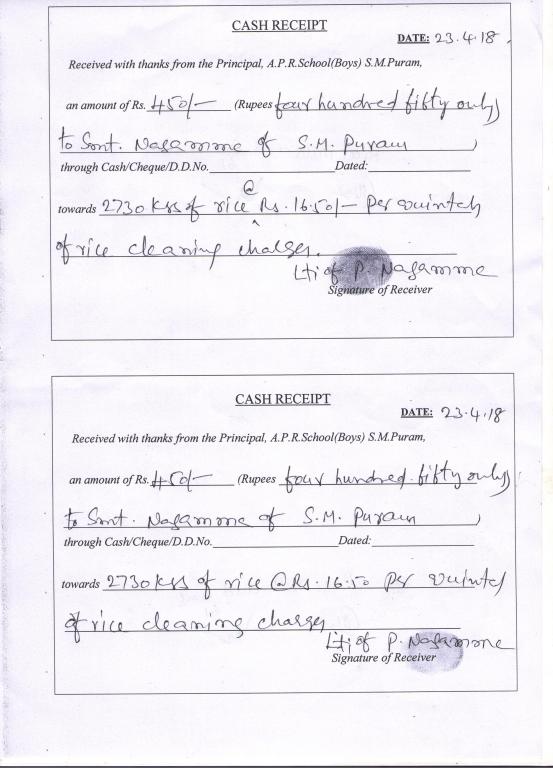 CASH RECEIPT
DATE: 23.4.18.
Received with thanks from the Principal, A.P.R.School(Boys) S.M.Puram,
an amount of Rs. 450/- (Rupees four hundred fifty only)
to Smt. Nagamme of S.M. Puram )
through Cash/Cheque/D.D.No. Dated:
towards 2730 kgs of rice @ Rs. 16.50/- per quintal
of rice cleaning charges.
Lti of P. Nagamme
Signature of Receiver
CASH RECEIPT
DATE: 23.4.18
Received with thanks from the Principal, A.P.R.School(Boys) S.M.Puram,
an amount of Rs. 450/- (Rupees four hundred fifty only)
to Smt. Nagamme of S.M. Puram )
through Cash/Cheque/D.D.No. Dated:
towards 2730 kgs of rice @ Rs. 16.50 per quintal
of rice cleaning charges
Lti of P. Nagamme
Signature of Receiver